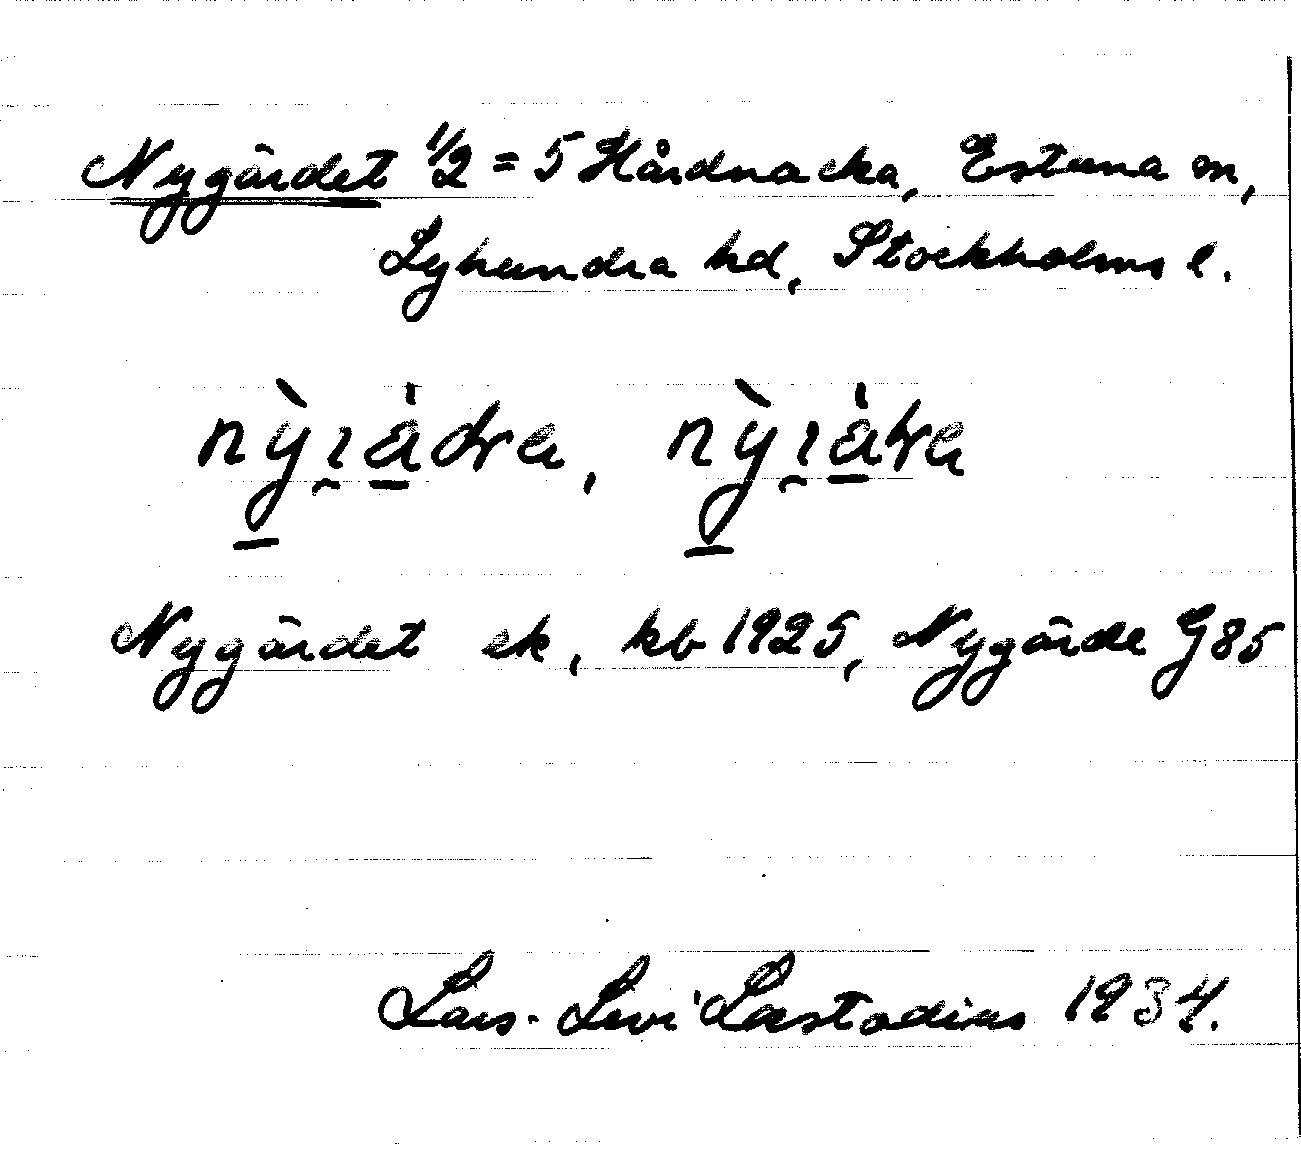 Nygärdet 1/2 = 5 Hårdnacka, Estuna sn,
Lyhundra hd, Stockholms l.
Nygärdet ek, kb 1925, Nygärde G 85
Lars-Levi Læstadius 1934.